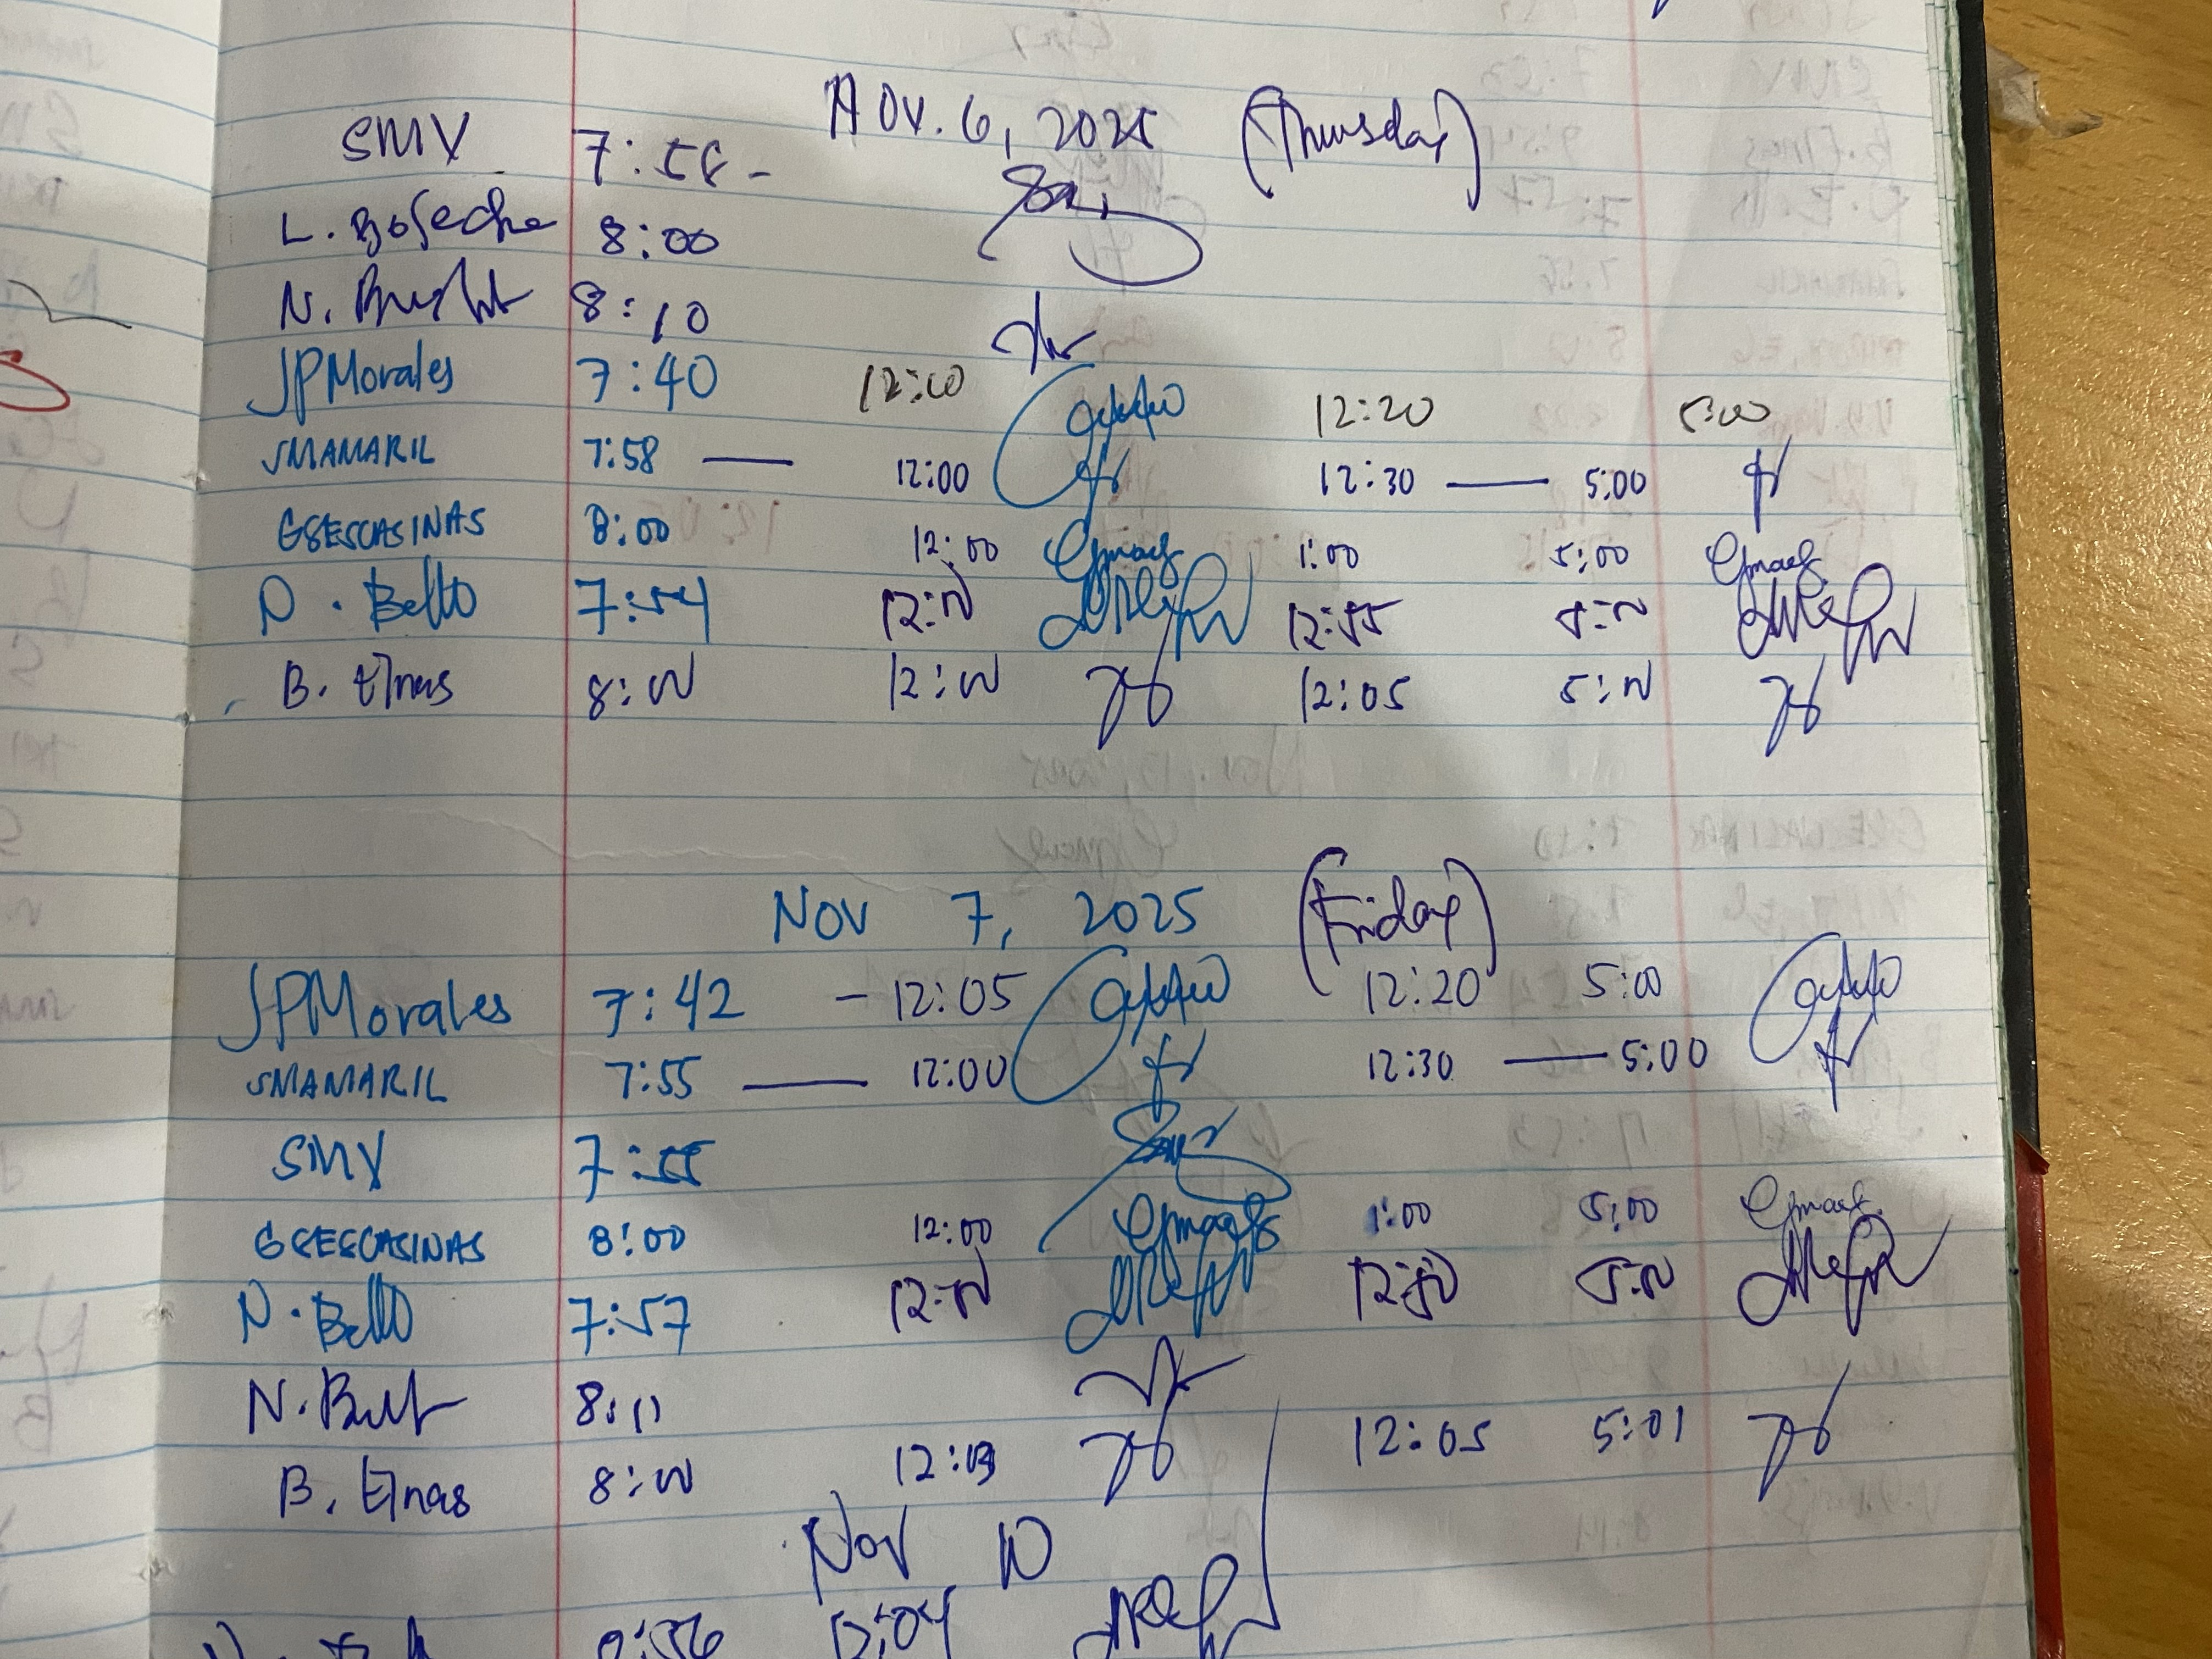 Nov. 6, 2025 (Thursday)
SMV 7:58 -
L. 8:00
N. 8:10
JPMorales 7:40 12:10 12:20 5:00
JMAMARIL 7:58 — 12:00 12:30 — 5:00
GSESCASINAS 8:00 12:00 1:00 5:00
N. Bello 7:54 12:00 12:55 5:00
B. Elnas 8:00 12:00 12:05 5:00
Nov 7, 2025 (Friday)
JPMorales 7:42 - 12:05 12:20 5:00
JMAMARIL 7:55 — 12:00 12:30 — 5:00
SMV 7:55
GSESCASINAS 8:00 12:00 1:00 5:00
N. Bello 7:57 12:00 12:50 5:00
N. 8:11
B. Elnas 8:00 12:03 12:05 5:01
Nov 10
12:04